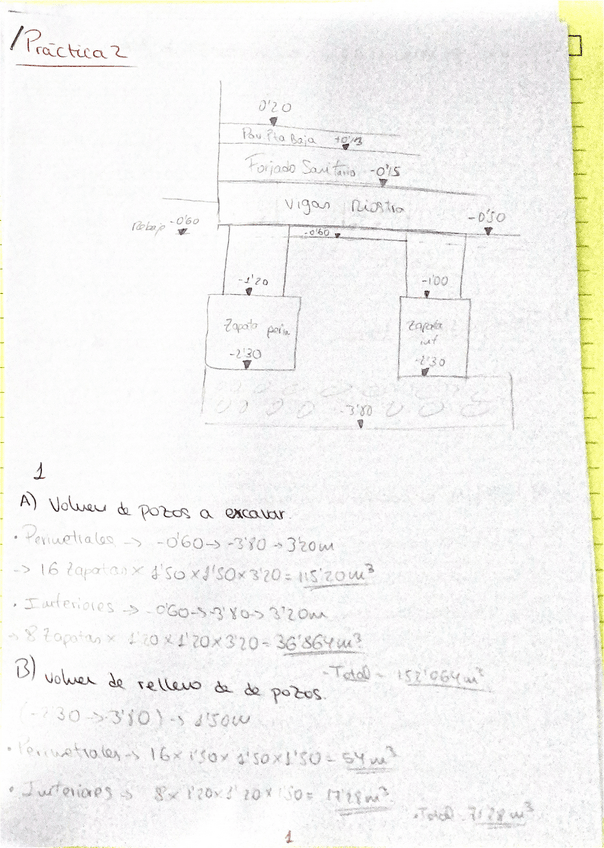 Práctica 2
0'20
Pav. Pta Baja +0'13
Forjado Sanitario -0'15
Vigas Riostra
-0'50
Rebaje -0'60
-0'60
-1'20
-1'00
Zapata perim
Zapata int
-2'30
-2'30
-3'80
1
A) Volumen de pozos a excavar.
• Perimetrales → -0'60 → -3'80 → 3'20m
→ 16 Zapatas × 1'50 × 1'50 × 3'20 = 115'20 m³
• Interiores → -0'60 → -3'80 → 3'20m
→ 8 Zapatas × 1'20 × 1'20 × 3'20 = 36'864 m³
- Total = 152'064 m³
B) Volumen de relleno de de pozos.
(-2'30 → -3'80) → 1'50m
• Perimetrales → 16 × 1'50 × 1'50 × 1'50 = 54 m³
• Interiores → 8 × 1'20 × 1'20 × 1'50 = 17'28 m³
• Total 71'28 m³
1